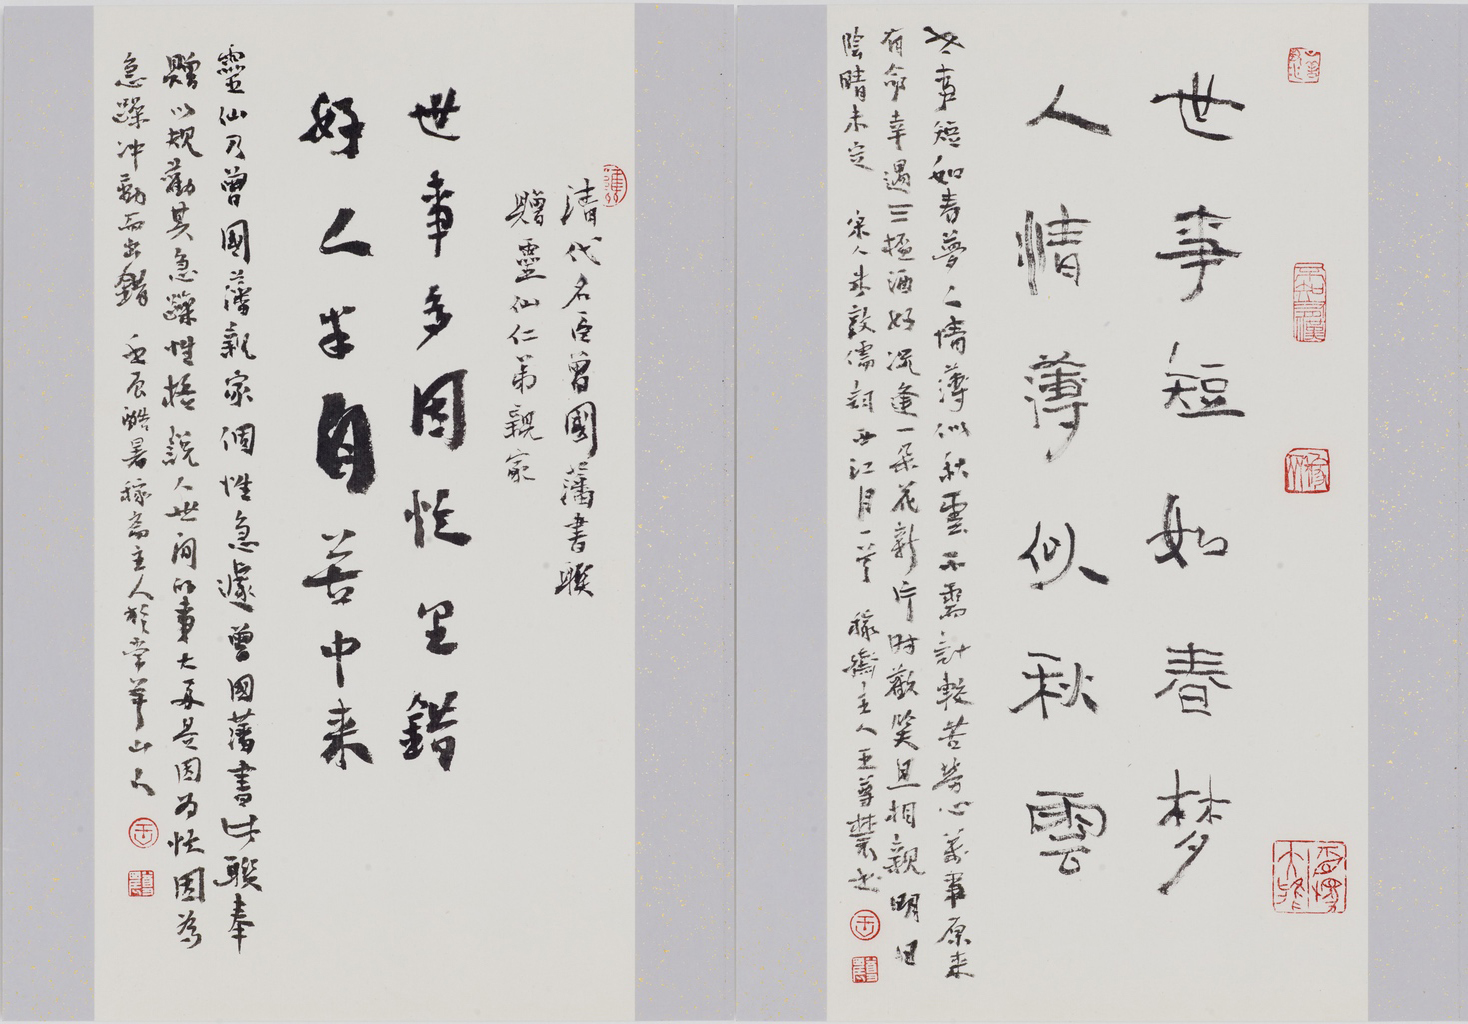 世事短如春梦
人情薄似秋雲
世事短如春夢人情薄似秋雲不需計較苦勞心萬事原来
有命幸遇三盃酒好況逢一朵花新片时歡笑且相親明日
陰晴未定 宋人朱敦儒詞西江月一首 稼齋主人王尊農书
清代名臣曾國藩書聯
贈靈仙仁弟親家
世事多因忙里錯
好人半自苦中来
靈仙乃曾國藩親家個性急遽曾國藩書此聯奉
贈以規勸其急躁性格說人世间的事大多是因为忙因為
急躁冲動而出錯 壬辰酷暑稼斋主人於常華山人